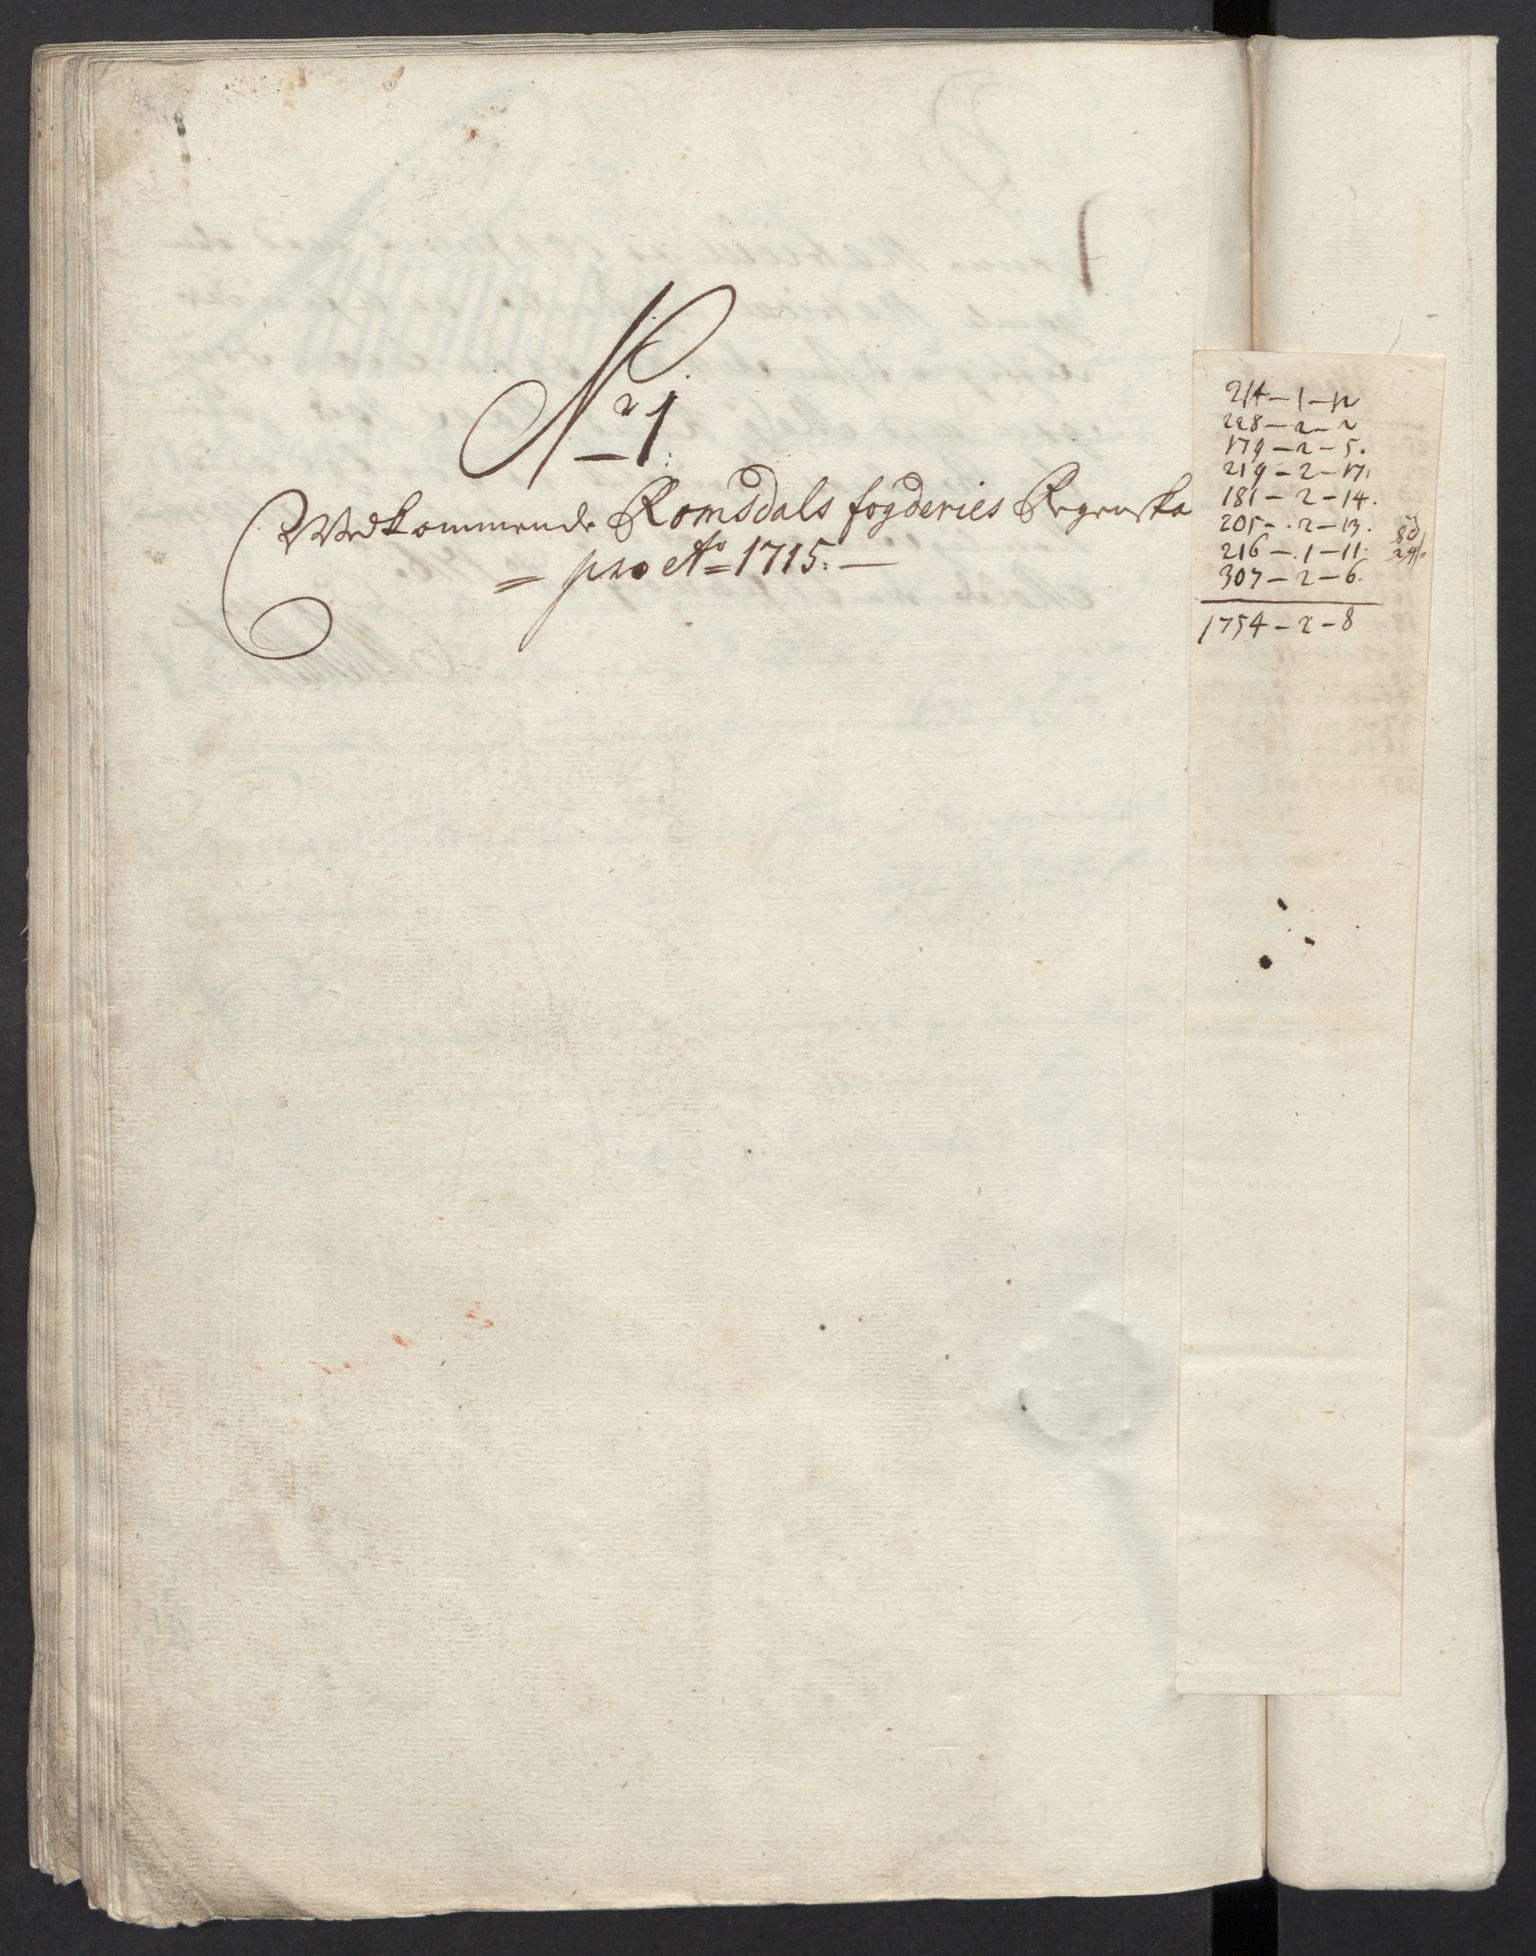 Nr 1.
Vedkommende Romsdals fogderies Regenska
= pro Ao = 1715. —
214 – 1 – 12
228 – 2 – 2
179 – 2 – 5.
219 – 2 – 17.
181 – 2 – 14.
205 – 2 – 13.
216 – 1 – 11.
307 – 2 – 6.
1754 – 2 – 8
80
24